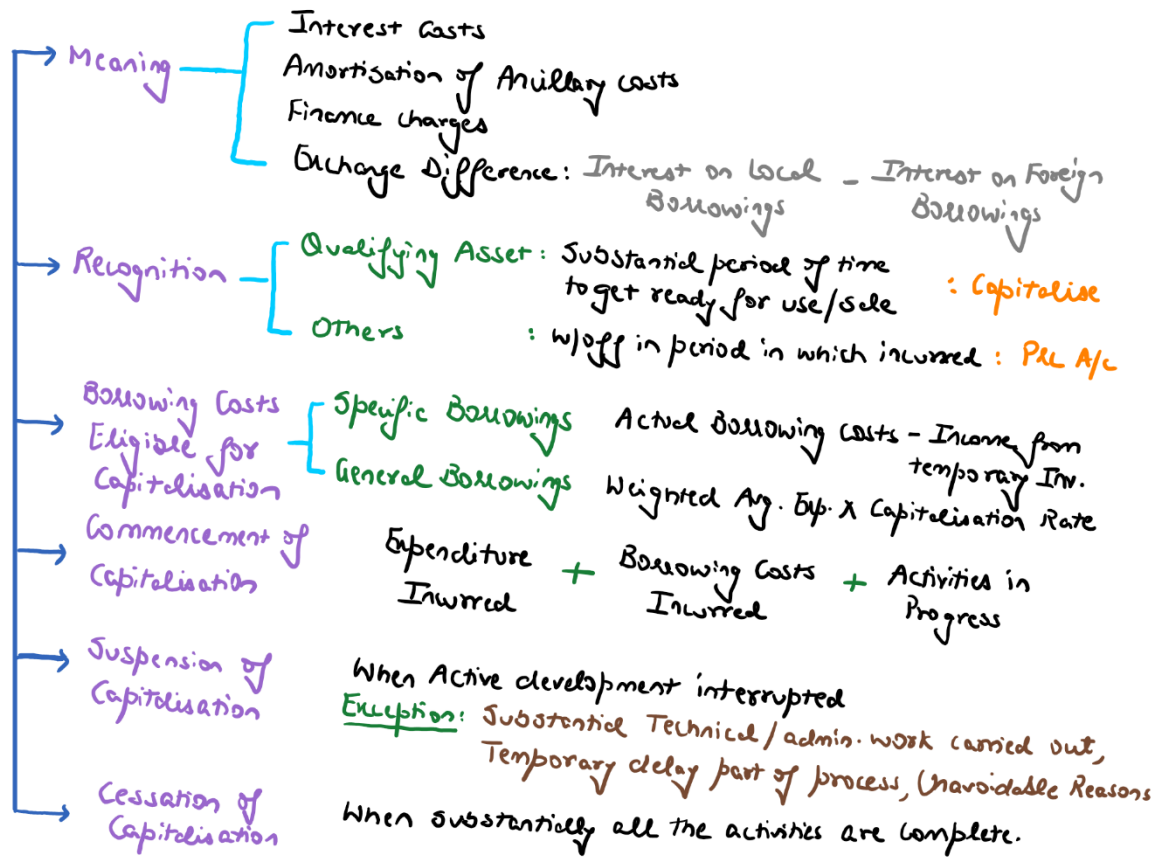 Meaning
Interest Costs
Amortisation of Ancillary costs
Finance charges
Exchange Difference: Interest on Local Borrowings - Interest on Foreign Borrowings
Recognition
Qualifying Asset: Substantial period of time
to get ready for use/sale : Capitalise
Others : w/off in period in which incurred : P&L A/c
Borrowing Costs
Eligible for
Capitalisation
Specific Borrowings Actual Borrowing Costs - Income from
temporary Inv.
General Borrowings Weighted Avg. Exp. X Capitalisation Rate
Commencement of
Capitalisation
Expenditure
Incurred
+
Borrowing Costs
Incurred
+
Activities in
Progress
Suspension of
Capitalisation
When Active development interrupted
Exception: Substantial Technical/admin. work carried out,
Temporary delay part of process, Unavoidable Reasons
Cessation of
Capitalisation
When substantially all the activities are complete.